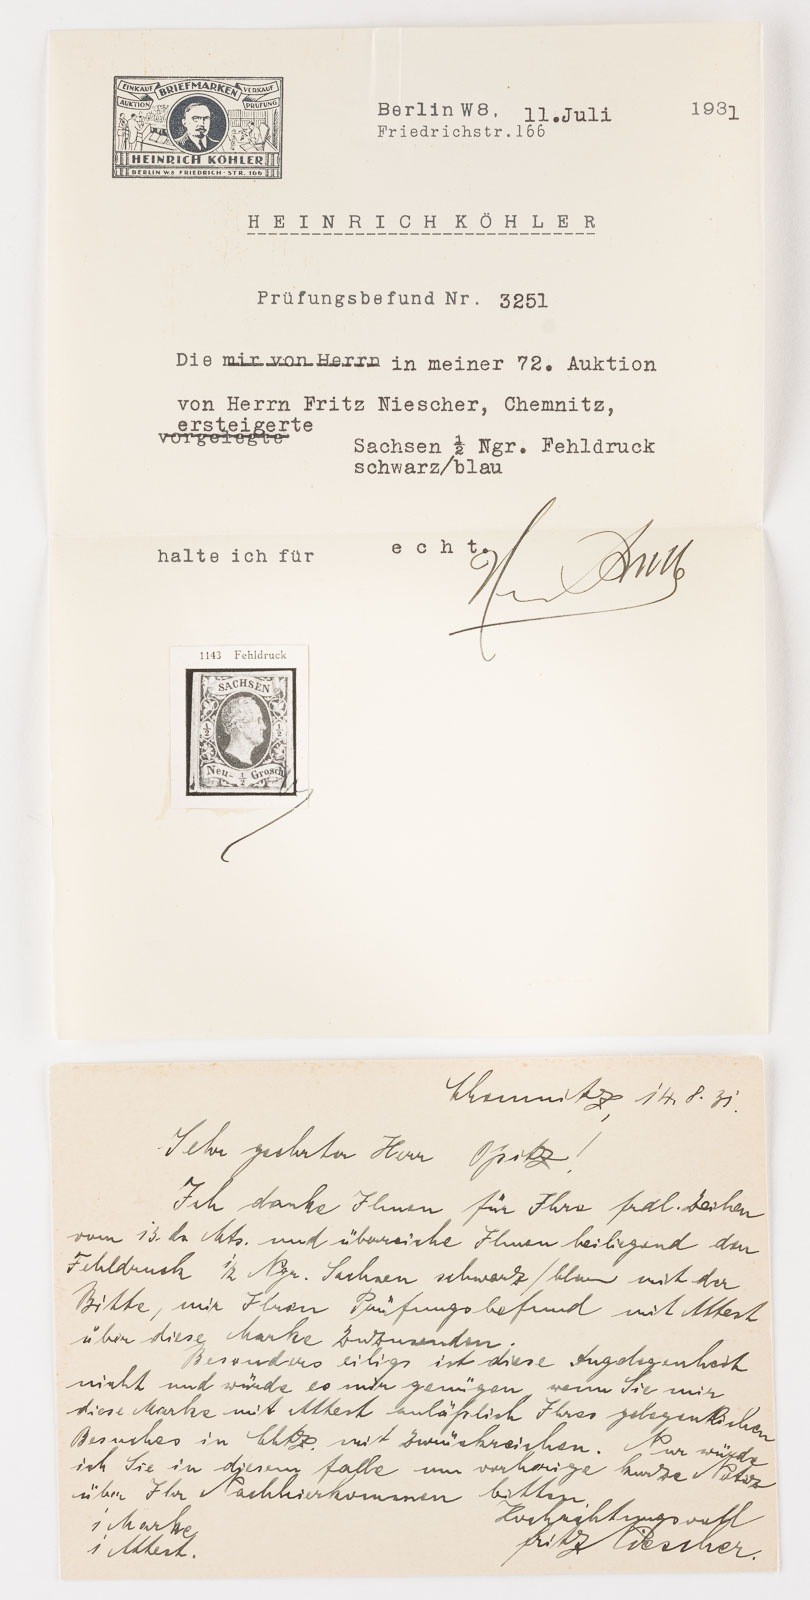 EINKAUF BRIEFMARKEN VERKAUF
AUKTION PRÜFUNG
HEINRICH KÖHLER
BERLIN W.8 FRIEDRICH-STR. 166
Berlin W8, 11.Juli 1931
Friedrichstr.166
HEINRICH KÖHLER
Prüfungsbefund Nr. 3251
Die mir von Herrn in meiner 72. Auktion
von Herrn Fritz Niescher, Chemnitz,
ersteigerte
vorgelegte
Sachsen ½ Ngr. Fehldruck
schwarz/blau
halte ich für echt.
1143 Fehldruck
SACHSEN
½ ½
Neu- ½ Grosch
Chemnitz, 14.8.31.
Sehr geehrter Herr Opitz!
Ich danke Ihnen für Ihre frdl. Zeihen
vom 13. ds Mts. und überreiche Ihnen beiliegend den
Fehldruck ½ Ngr. Sachsen schwarz/blau mit der
Bitte, mir Ihren Prüfungsbefund mit Attest
über diese Marke zuzusenden.
Besonders eilig ist diese Angelegenheit
nicht und würde es mir genügen, wenn Sie mir
diese Marke mit Attest anläßlich Ihres gelegentlichen
Besuches in Chtz. mit zurückreichen. Nur würde
ich Sie in diesem Falle um vorherige kurze Notiz
über Ihr Nachhierkommen bitten.
Hochachtungsvoll
Fritz Niescher.
1 Marke
1 Attest.